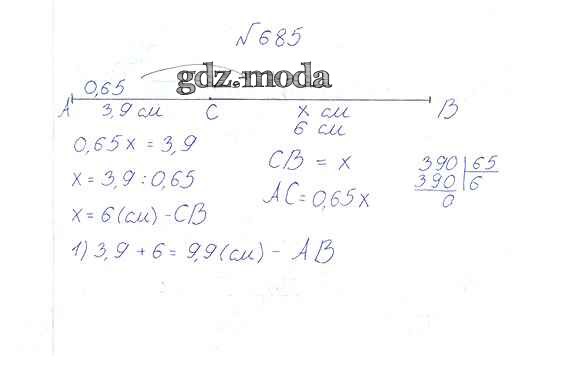 №685
gdz.moda
0,65
A 3,9 см C x см B
6 см
0,65x = 3,9
x = 3,9 : 0,65
x = 6 (см) - CB
CB = x
AC = 0,65x
390 65
390 6
0
1) 3,9 + 6 = 9,9 (см) - AB